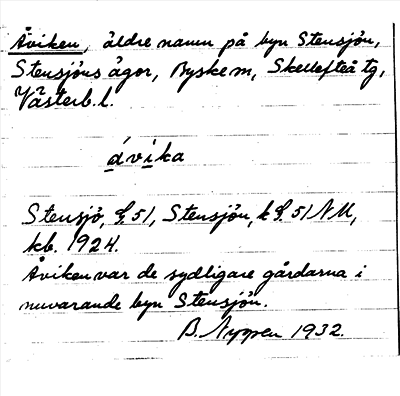 Åviken, äldre namn på byn Stensjön,
Stensjöns ägor, Byske sn, Skellefteå tg,
Västerb. l.
åvika
Stensjö, § 51, Stensjön, k §. 51 NU,
kb. 1924.
Åviken var de sydligare gårdarna i
nuvarande byn Stensjön.
B. Nyppen 1932.